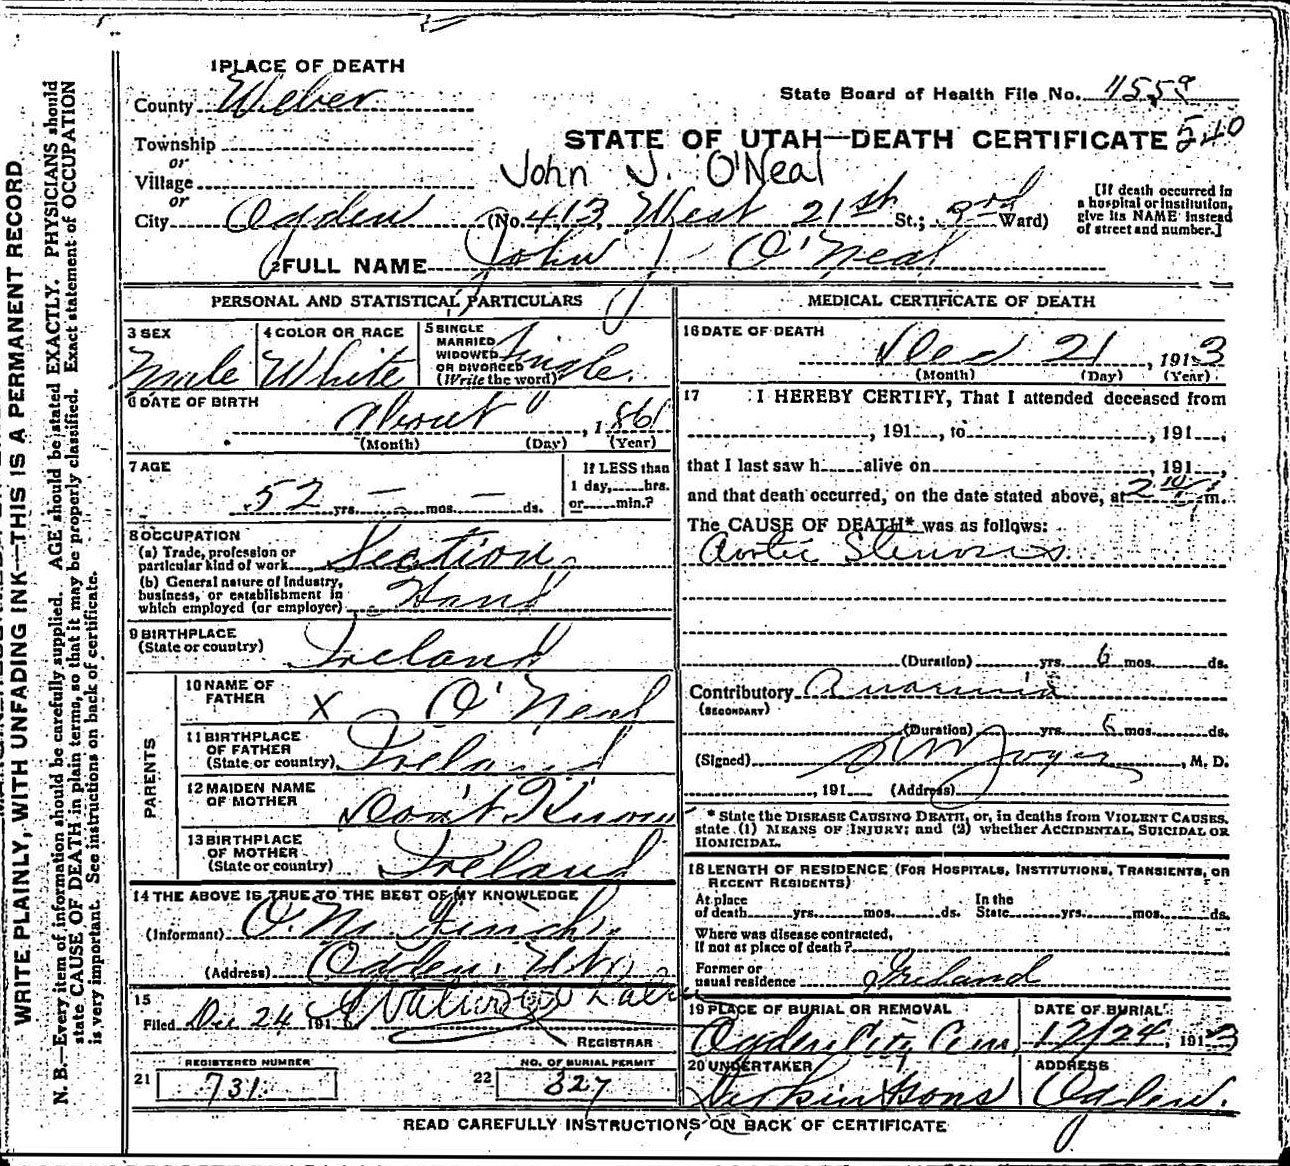 WRITE PLAINLY, WITH UNFADING INK—THIS IS A PERMANENT RECORD
N. B.—Every item of information should be carefully supplied. AGE should be stated EXACTLY. PHYSICIANS should
state CAUSE OF DEATH in plain terms, so that it may be properly classified. Exact statement of OCCUPATION
is very important. See instructions on back of certificate.
1 PLACE OF DEATH
County Weber
State Board of Health File No.
Township
STATE OF UTAH—DEATH CERTIFICATE
or
Village
John J. O'Neal
or
City Ogden (No. 413, West 21st St.; 3rd Ward)
[If death occurred in
a hospital or institution,
give its NAME instead
of street and number.]
2 FULL NAME John J O'Neal
PERSONAL AND STATISTICAL PARTICULARS
3 SEX
Male
4 COLOR OR RACE
White
5 SINGLE
MARRIED
WIDOWED
OR DIVORCED
(Write the word)
Single.
6 DATE OF BIRTH
About, 1861
(Month) (Day) (Year)
7 AGE
52 yrs. — mos. — ds.
If LESS than
1 day, hrs.
or min.?
8 OCCUPATION
(a) Trade, profession or
particular kind of work Section
(b) General nature of Industry,
business, or establishment in
which employed (or employer) Hand
9 BIRTHPLACE
(State or country) Ireland
PARENTS
10 NAME OF
FATHER X O'Neal
11 BIRTHPLACE
OF FATHER
(State or country) Ireland
12 MAIDEN NAME
OF MOTHER Don't Know
13 BIRTHPLACE
OF MOTHER
(State or country) Ireland
14 THE ABOVE IS TRUE TO THE BEST OF MY KNOWLEDGE
(Informant) O. M.
(Address) Ogden, Utah
15
Filed Dec 24 191
REGISTRAR
REGISTERED NUMBER
21 731
NO. OF BURIAL PERMIT
22 327
MEDICAL CERTIFICATE OF DEATH
16 DATE OF DEATH
Dec 21, 1913
(Month) (Day) (Year)
17 I HEREBY CERTIFY, That I attended deceased from
, 191 , to , 191 ,
that I last saw h alive on , 191 ,
and that death occurred, on the date stated above, at 2 m.
The CAUSE OF DEATH* was as follows:
Aortic Stenosis
(Duration) yrs. 6 mos. ds.
Contributory
(SECONDARY)
(Duration) yrs. 6 mos. ds.
(Signed) , M. D.
, 191 (Address)
* State the DISEASE CAUSING DEATH, or, in deaths from VIOLENT CAUSES,
state (1) MEANS OF INJURY; and (2) whether ACCIDENTAL, SUICIDAL OR
HOMICIDAL.
18 LENGTH OF RESIDENCE (FOR HOSPITALS, INSTITUTIONS, TRANSIENTS, OR
RECENT RESIDENTS)
At place
of death yrs. mos. ds.
In the
State yrs. mos. ds.
Where was disease contracted,
if not at place of death?
Former or
usual residence Ireland
19 PLACE OF BURIAL OR REMOVAL
Ogden City Cem
DATE OF BURIAL
12/24, 1913
20 UNDERTAKER
ADDRESS
Ogden.
READ CAREFULLY INSTRUCTIONS ON BACK OF CERTIFICATE